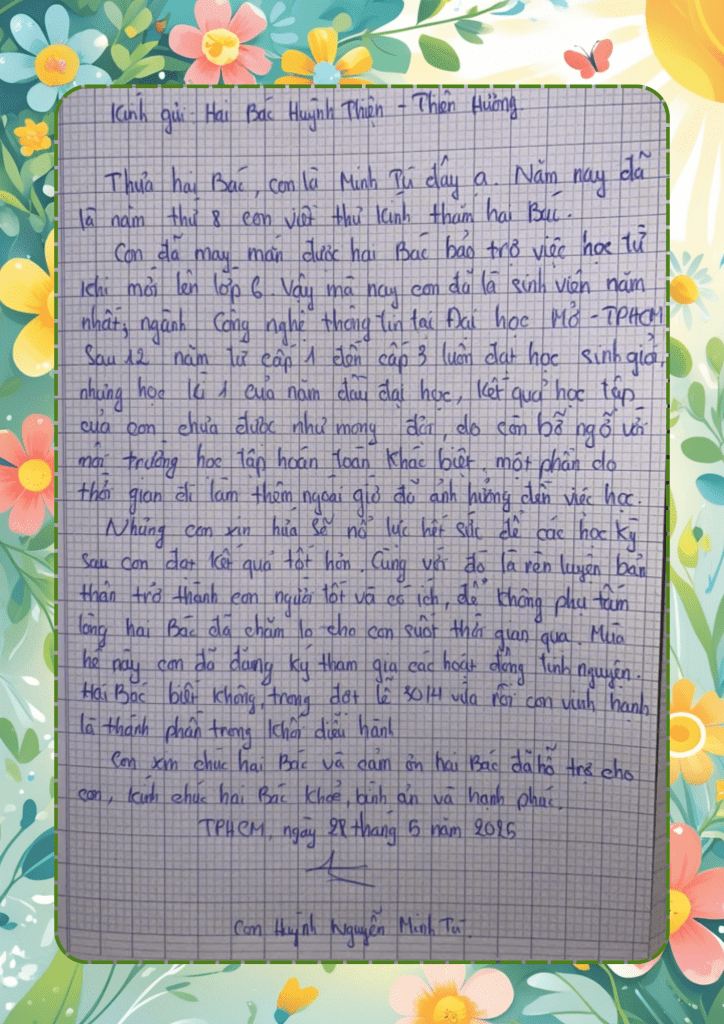 Kính gửi: Hai Bác Huỳnh Thiện - Thiên Hương
Thưa hai Bác, con là Minh Tú đây ạ. Năm nay đã
là năm thứ 8 con viết thư kính thăm hai Bác.
Con đã may mắn được hai Bác bảo trợ việc học từ
khi mới lên lớp 6. Vậy mà nay con đã là sinh viên năm
nhất, ngành Công nghệ thông tin tại Đại học Mở - TPHCM
Sau 12 năm từ cấp 1 đến cấp 3 luôn đạt học sinh giỏi,
nhưng học kì 1 của năm đầu đại học, kết quả học tập
của con chưa được như mong đợi, do còn bỡ ngỡ với
môi trường học tập hoàn toàn khác biệt, một phần do
thời gian đi làm thêm ngoài giờ đã ảnh hưởng đến việc học.
Nhưng con xin hứa sẽ nổ lực hết sức để các học kỳ
sau con đạt kết quả tốt hơn. Cùng với đó là rèn luyện bản
thân trở thành con người tốt và có ích, để không phụ tấm
lòng hai Bác đã chăm lo cho con suốt thời gian qua. Mùa
hè này con đã đăng ký tham gia các hoạt động tình nguyện.
Hai Bác biết không, trong đợt lễ 30/4 vừa rồi con vinh hạnh
là thành phần trong khối diễu hành
Con xin chúc hai Bác và cảm ơn hai Bác đã hỗ trợ cho
con, kính chúc hai Bác khoẻ, bình an và hạnh phúc.
TPHCM, ngày 28 tháng 5 năm 2025
Con Huỳnh Nguyễn Minh Tú.